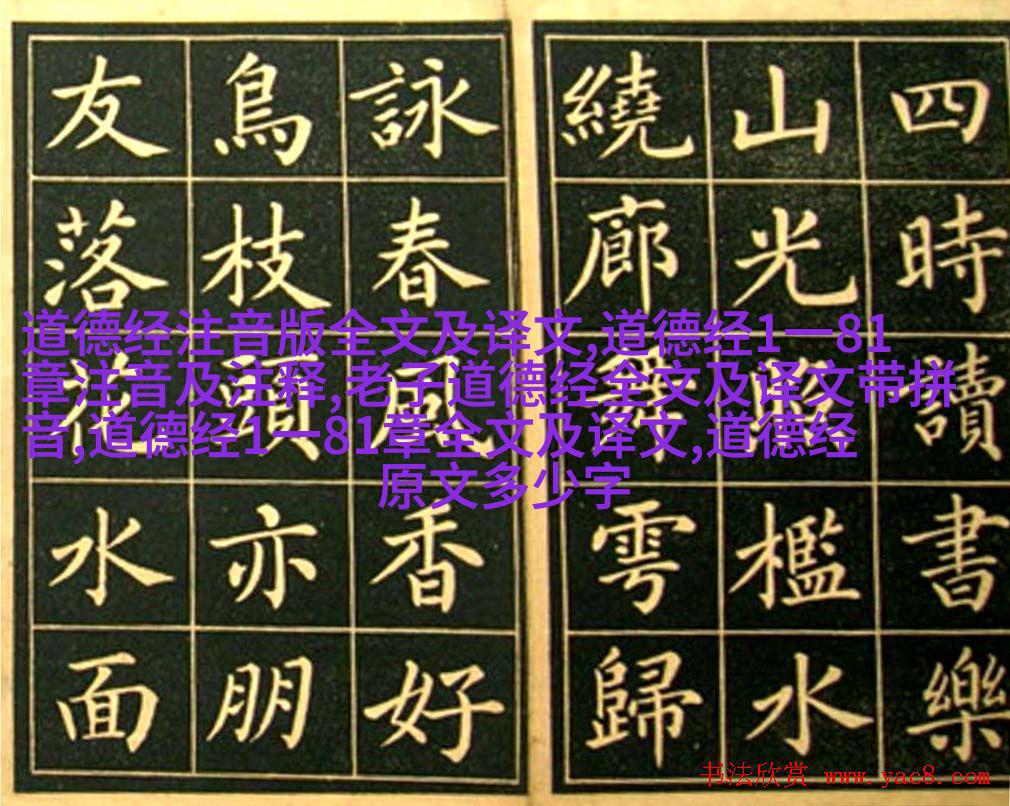 四時讀書樂
山光檻水
繞廊雩歸
詠春風香好
鳥枝頭亦朋
友落花水面
道德经注音版全文及译文,道德经1一81
章注音及注释,老子道德经全文及译文带拼
音,道德经1一81章全文及译文,道德经
原文多少字
书法欣赏 www.yac8.com